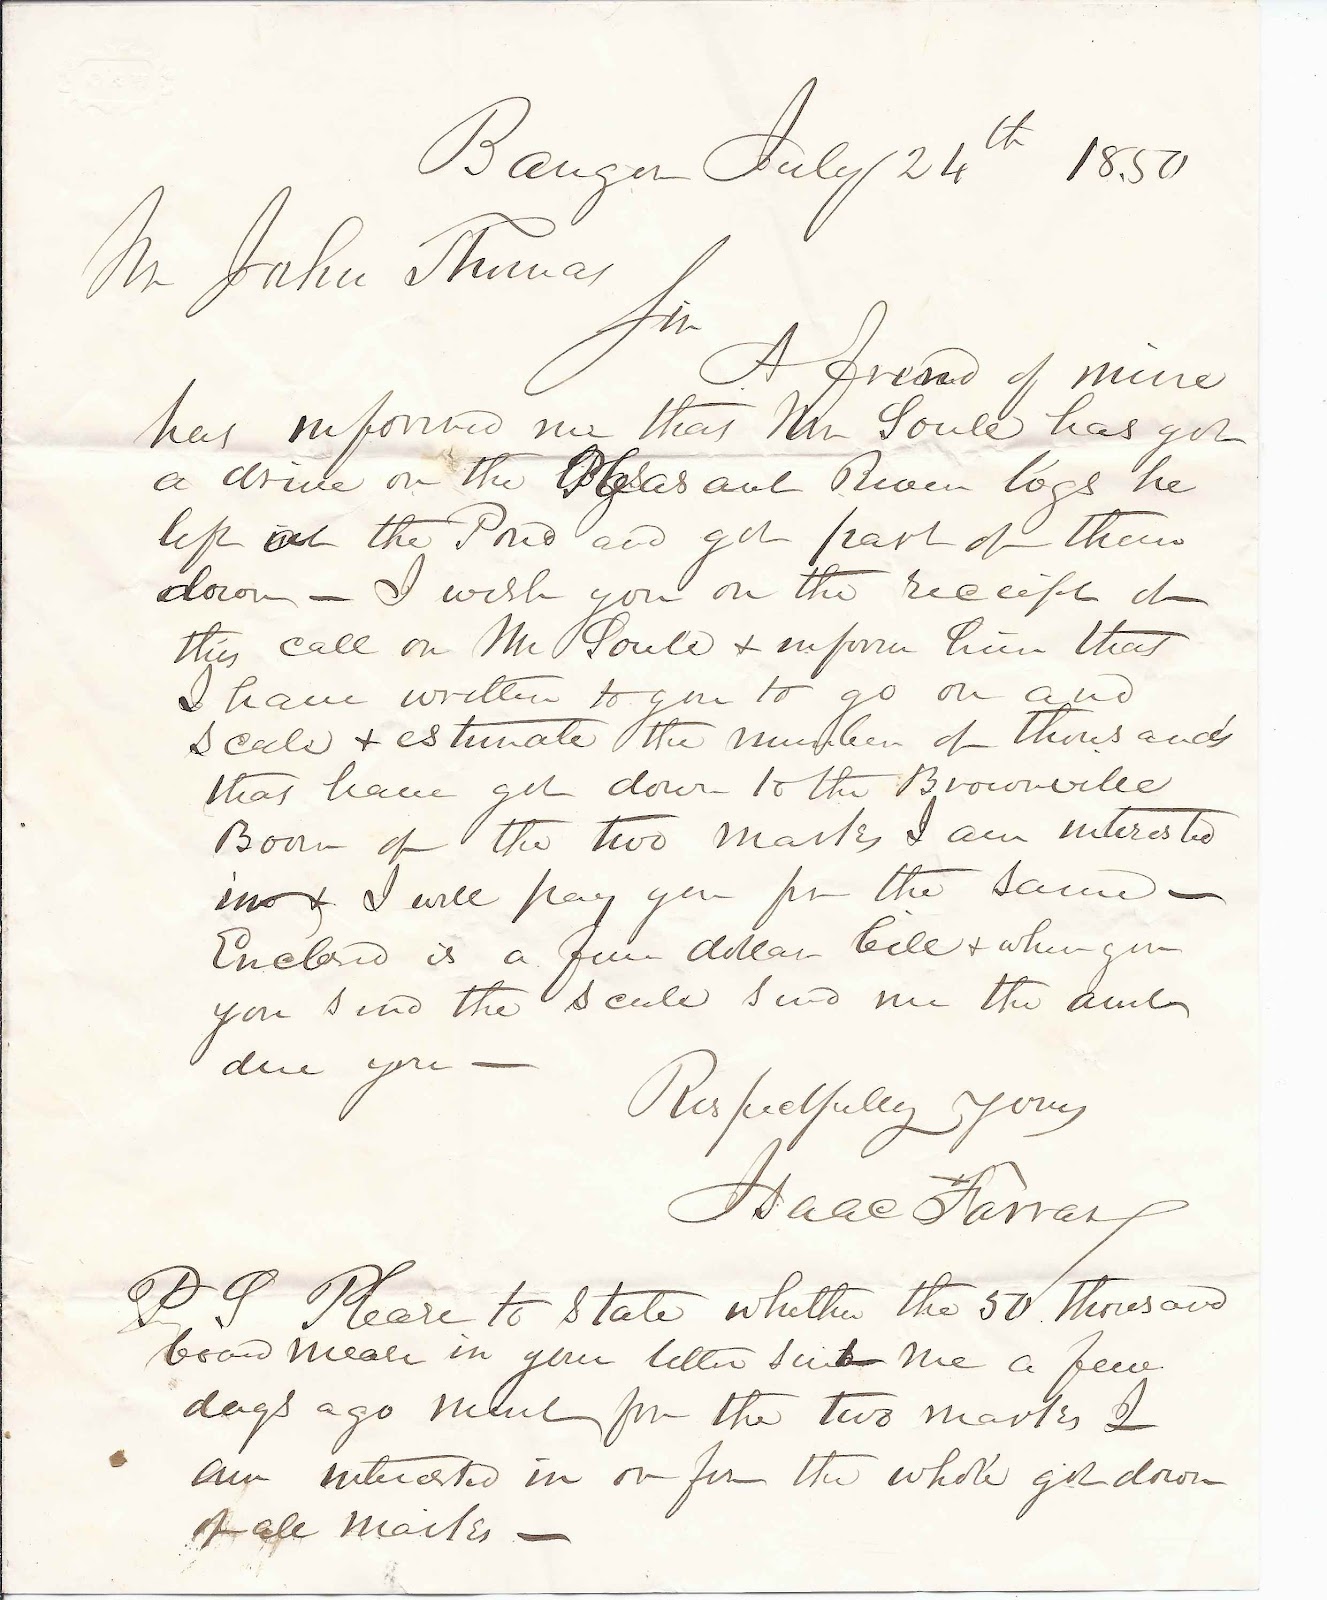 Bangor July 24th 1850
Mr John Thomas
Sir
A friend of mine
has informed me that Mr Soule has got
a drive on the Pleasant River logs he
left in the Pond and got part of them
down — I wish you on the receipt of
this call on Mr Soule & inform him that
I have written to you to go on and
scale & estimate the number of thousands
that have got down to the Brownville
Boom of the two marks I am interested
in & I will pay you for the same —
Enclosed is a five dollar bill & when you
you send the scale send me the amt
due you —
Respectfully yours
Isaac Farrar
P S Please to state whether the 50 thousand
board measure in your letter sent me a few
days ago ment for the two marks I
am interested in or for the whole got down
of all marks —